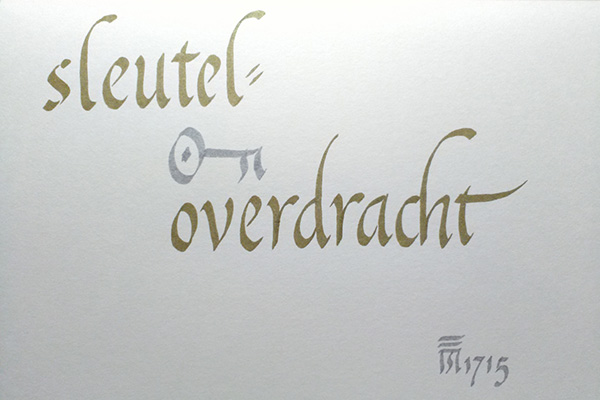 sleutel=
overdracht
1715